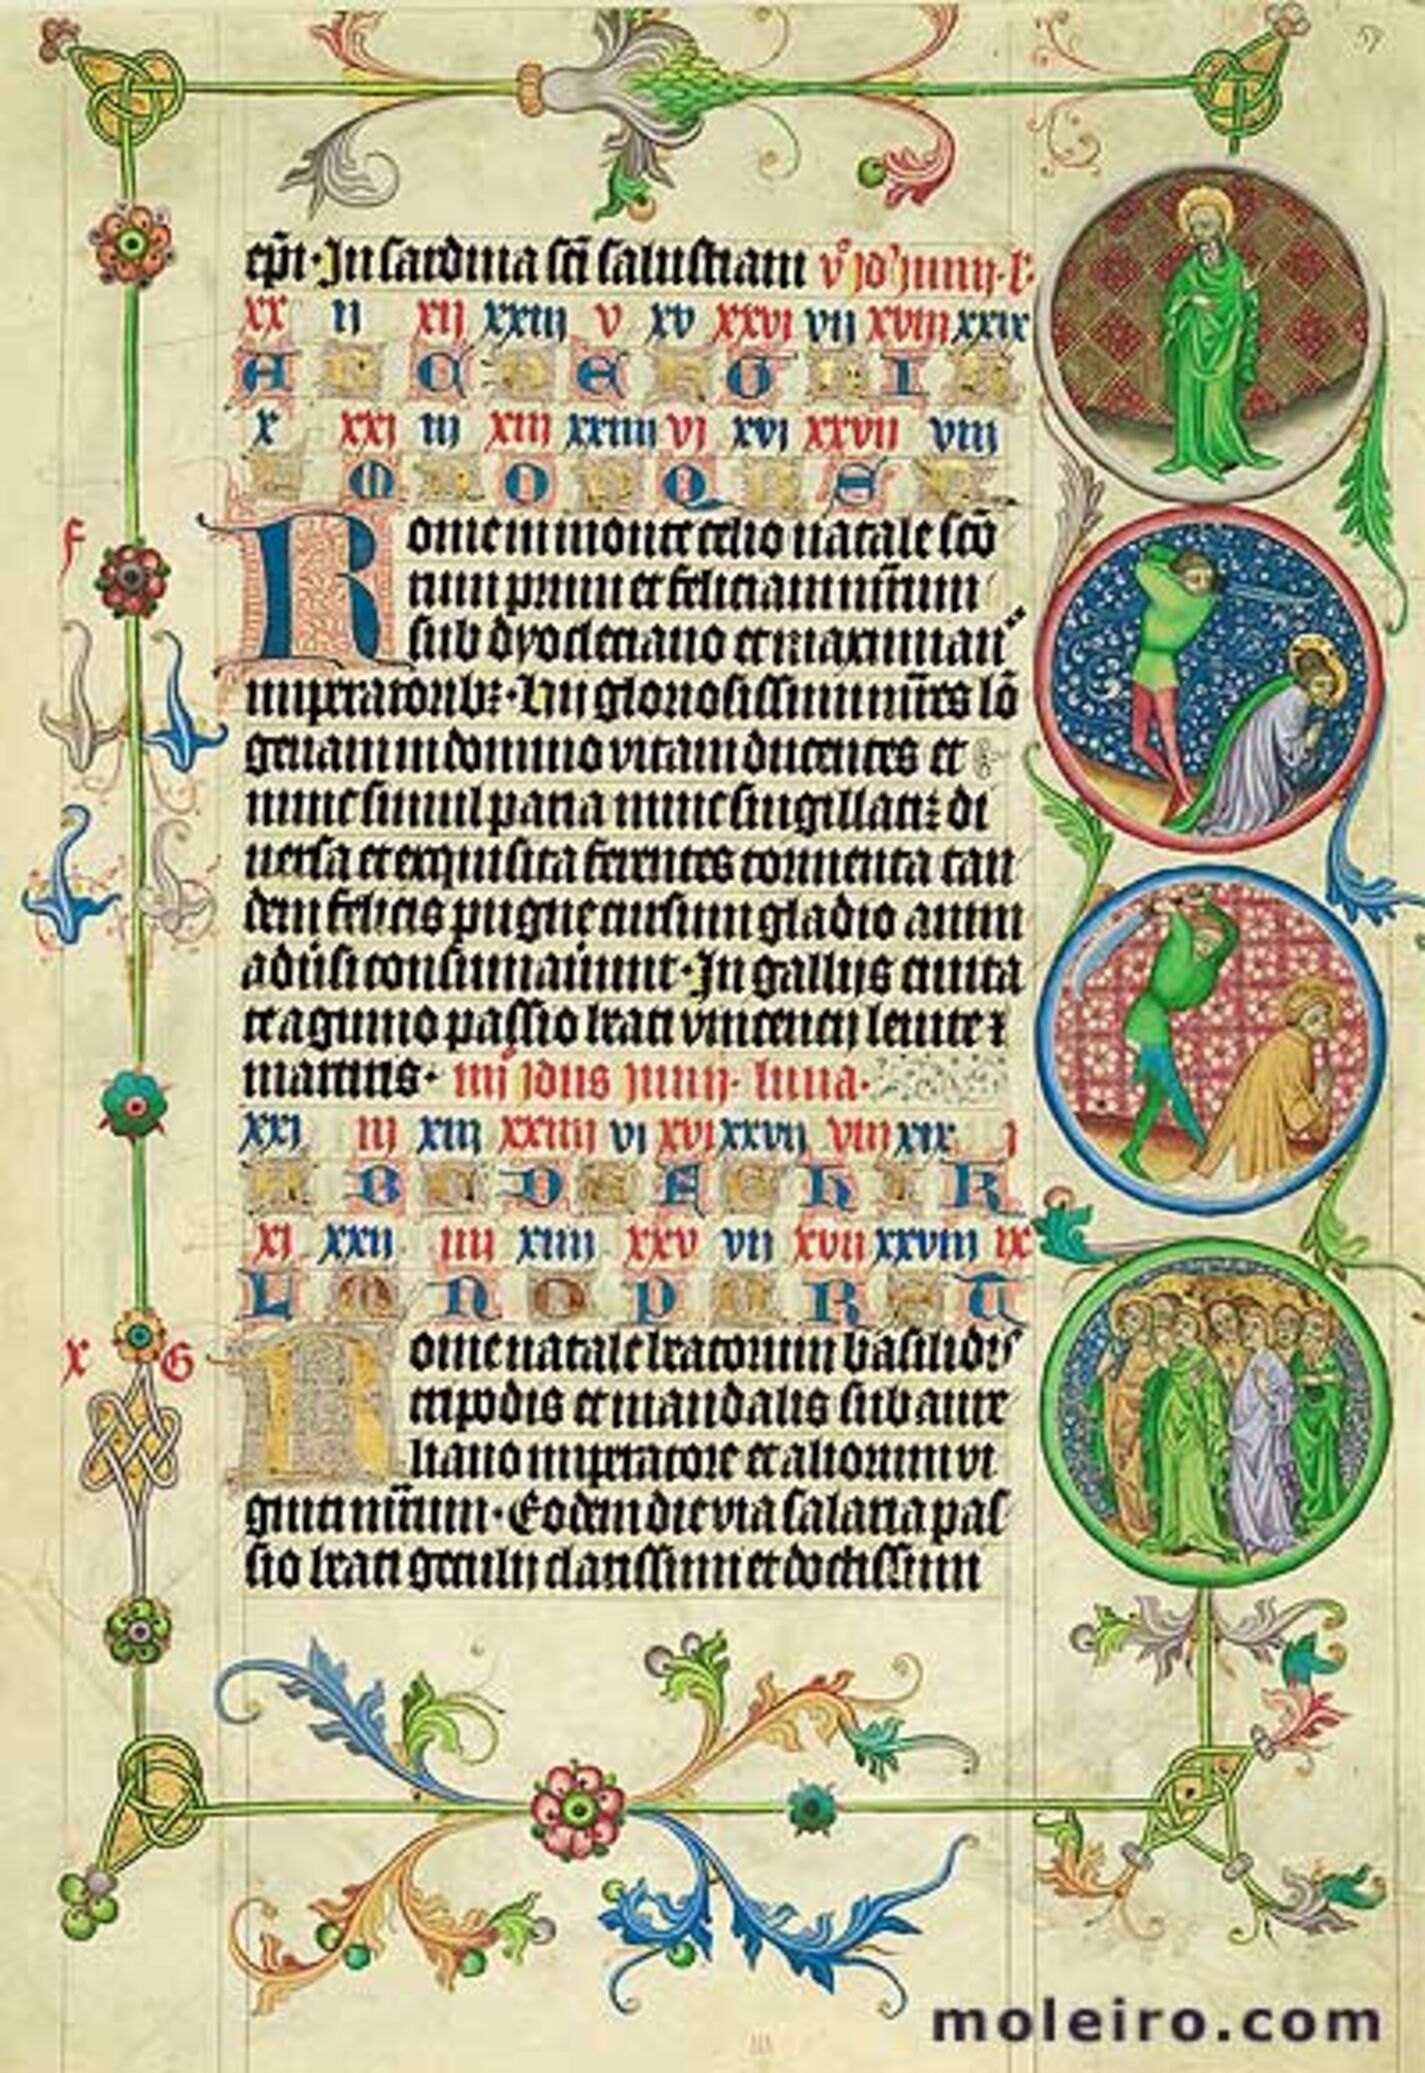 ep̄i · In sardinia scī salustiani v° jd' junij · l'
xx ij xij xxiij v xv xxvi vij xviij xxix
A B C D E F G H I K
x xxi iij xiij xxiiij vj xvj xxvij viij
L M N O P Q R S T
Rome in monte celio natale scō
rum primi et feliciani mr̄tirum
sub dyocletiano et maximian
imperatoribꝫ · Hii gloriosissimi mr̄es lō
geuam in domino vitam ducentes et
nunc simul paria nunc singillatiꝫ di
uersa et exquisita ferentes tormenta tan
dem felicis pugne cursum gladio anim
aduersi consumauerunt · In gallijs ciuita
te agunno passio beati vincencij leuite ⁊
martiris · iiij jdus junij · luna ·
xxi iij xiij xxiiij vi xvi xxvij viij xix j
A B C D E F G H I K
xi xxij iiij xiiij xxv vij xvij xxviij ix
L M N O P Q R S T
Rome natale beatorum basilidis
tripodis et mandalis sub aure
liano imperatore et aliorum vi
ginti mr̄tirum · Eodem die via salaria pas
sio beati getulij clarissimi et doctissimi
f
x G
57
moleiro.com